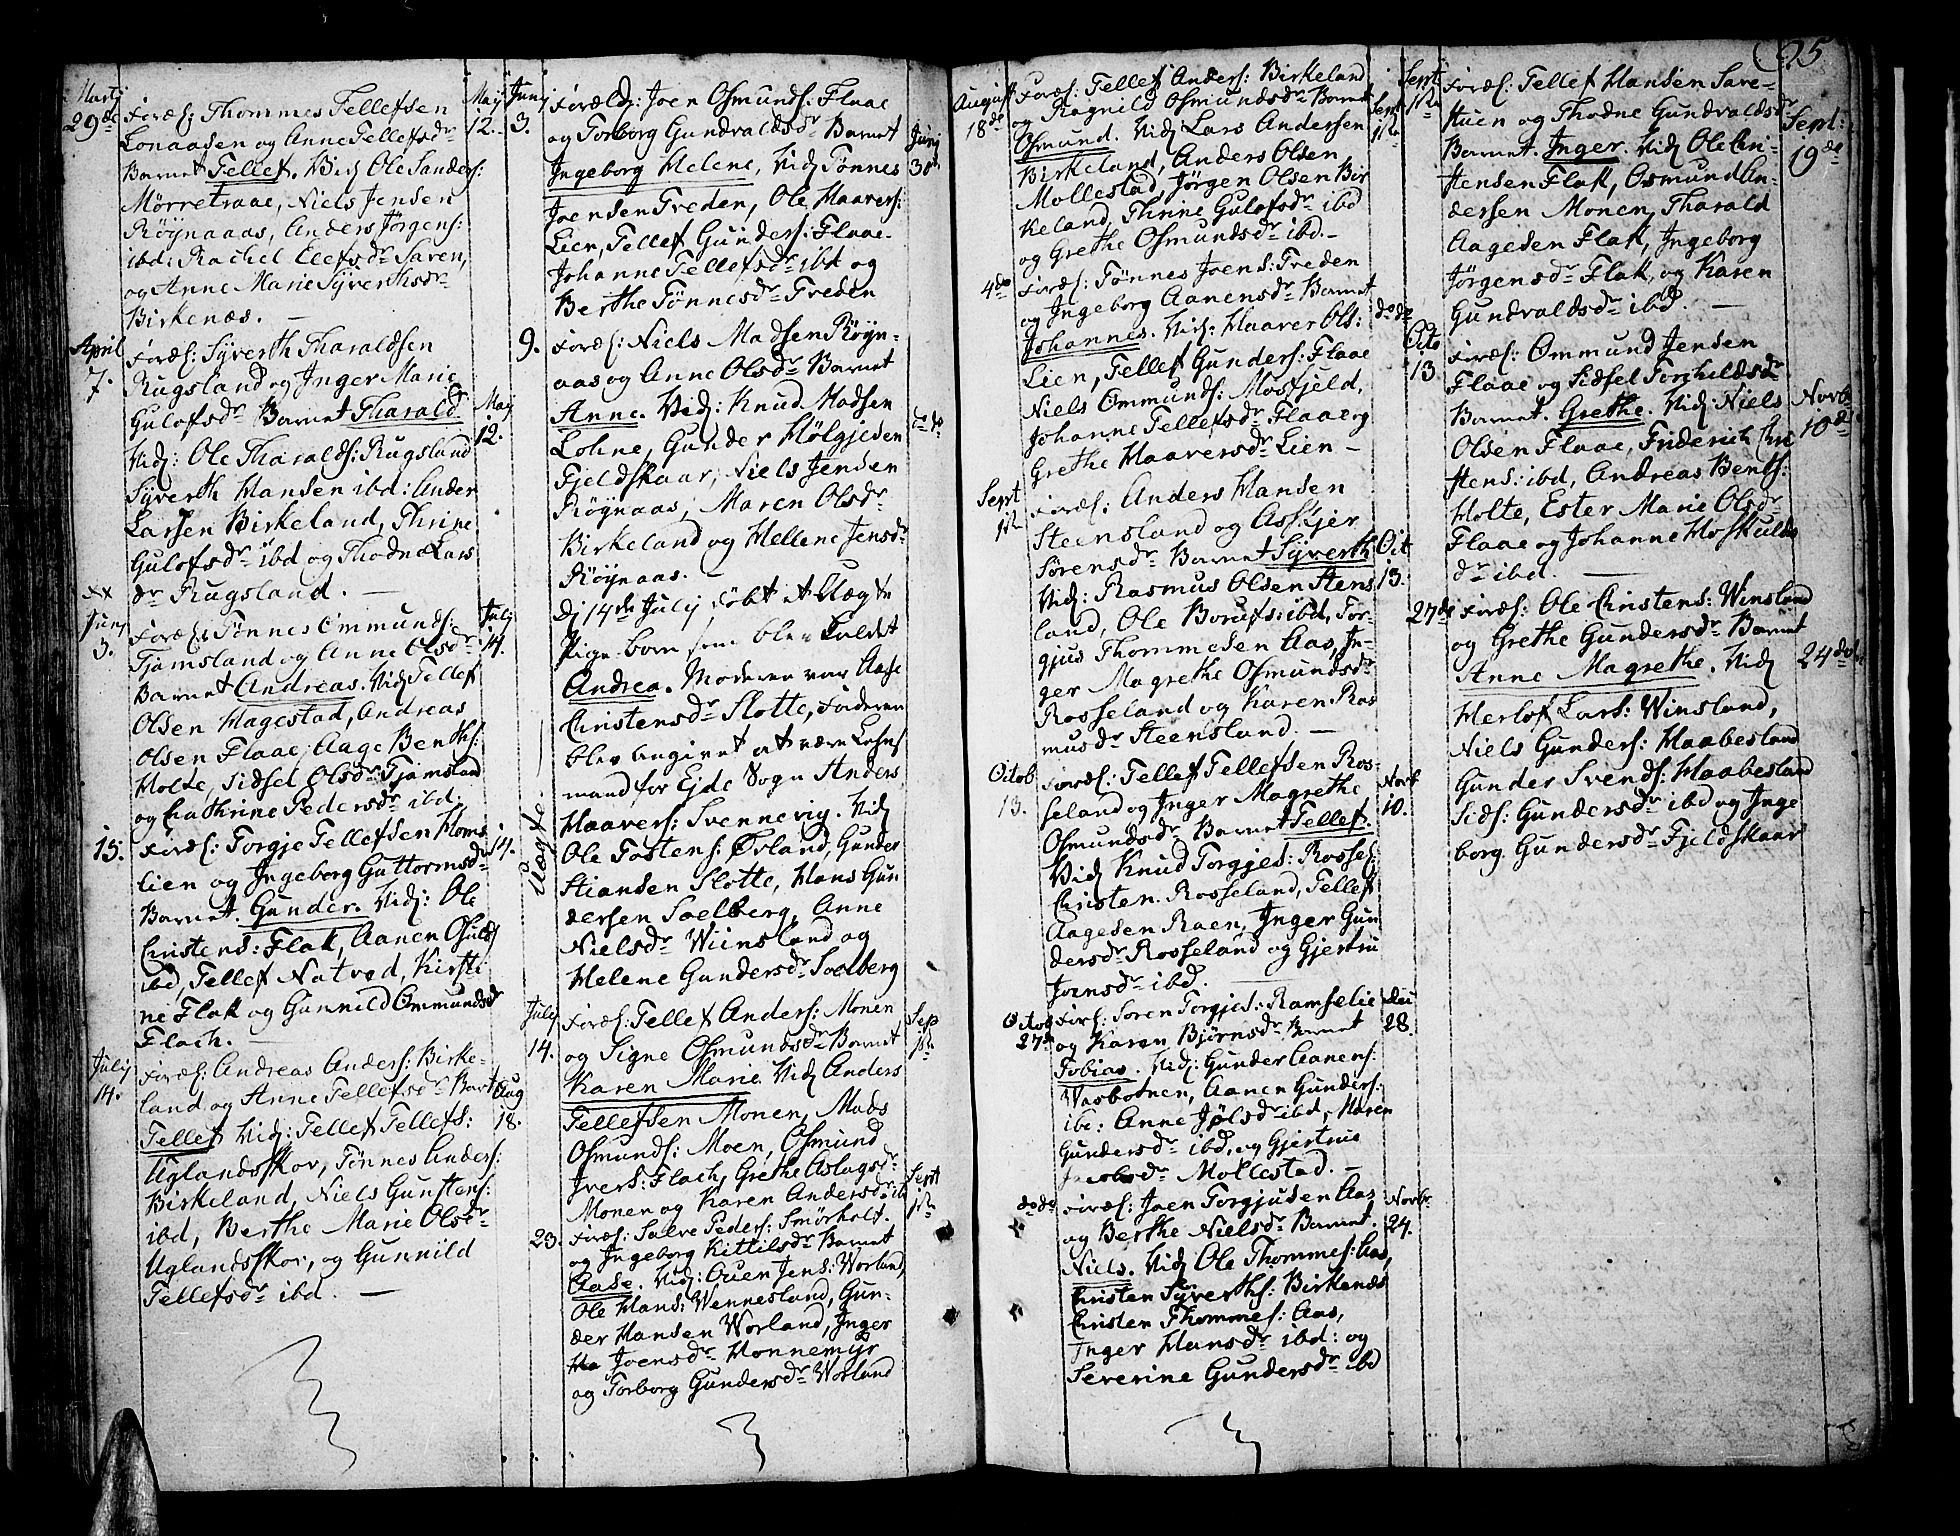 95
Martij
29de
Foræl: Thommes Tellefsen
Lonaasen og Anne Tellefsdr
Barnet Tellef. Vid: Ole Sanders:
Mørretraae, Niels Jensen
Røynaaas, Anders Jørgens:
ibd: Rachel Elefsdr Saren,
og Anne Marie Syverthsdr
Birkenæs. —
May
12.
April
7.
Foræl: Syverth Tharaldsen
Rugsland og Inger Marie
Gulofsdr Barnet Tharald
Vid: Ole Tharalds: Rugsland
Syverth Hansen ibd: Ander
Larsen Birkeland, Thrine
Gulofsdr ibd og Thodne Lars
dr Rugsland. —
May
12.
Junj
3.
Foræl: Tønnes Ommunds:
Tjamsland og Anne Olsdr
Barnet Andreas. Vid Tellef
Olsen Hagestad, Andreas
Olsen Flaae, Aage Benths:
Holte, Sidsel Olsdr Tjamsland
og Cathrine Pedersdr ibd.
July
14.
15.
Foræl: Torgje Tellefsen Homs
lien og Ingeborg Guttormsdr
Barnet. Gunder. Vid: Ole
Christens: Flak, Aanen Osulds
ibd, Tellef Natvod, Kirsti
ne Flak og Gunnild Ommundsdr
Flach. —
14.
July
14.
Foræl: Andreas Anders: Birke-
land og Anne Tellefsdr Bart
Tellef Vid: Tellef Tellefs:
Uglandsskov, Tønnes Anders:
Birkeland, Niels Gunstens:
ibd, Berthe Marie Olsdr
Uglandsskov, og Gunnild
Tellefsdr ibd. —
Aug
18.
Junj
3.
Foræld: Joen Osmunds: Flaae
og Torborg Gundvaldsdr Barnet
Ingeborg Helene, Vid Tønnes
Joensen Treden, Ole Haavers:
Lien, Tellef Gunders: Flaae
Johanne Tellefsdr ibd og
Berthe Tønnesdr Treden
Junj
30te
9.
Foræl: Niels Madsen Røyn-
aas og Anne Olsdr Barnet
Anne. Vid: Knud Madsen
Lohne, Gunder Hølgjesen
Fjeldskaar, Niels Jensen
Røynaas, Maren Olsdr
Birkeland og Hellene Jensdr
Røynaas. —
Uægte
Dj 14de July døbt et Uægte
Pigebarn som blev kaldet
Andrea. Moderen var Aase
Christensdr Slotte, Faderen
blev angivet at være Lehns
mand for Ejde Sogn Anders
Haavers: Svennevig. Vid
Ole Tostens: Ørland, Gunder
Stiansen Slotte, Hans Gun
dersen Soelberg, Anne
Nielsdr Wiinsland og
Helene Gundersdr Soelberg
July
14.
Foræl: Tellef Anders: Monen
og Signe Osmundsdr Barnet
Karen Marie Vid Anders
Tellefsen Monen, Mads
Osmunds: Moen, Osmund
Ivers: Flach, Grethe Aslagsdr
Monen og Karen Andersdr ib
Sep
1te
23.
Foræl: Salve Peders: Smörholt.
og Ingeborg Kittilsdr Barnet
Aase. Vid: Ouen Jens: Worland,
Ole Hans: Wennesland, Gun-
der Hansen Worland, Inger
Joensdr Honnemyr
og Torborg Gundersdr Worland
Sept
1te
August
18de
Foræl: Tellef Anders: Birkeland
og Ragnild Osmundsdr Barnet
Osmund. Vid Lars Andersen
Birkeland, Anders Olsen
Mollestad, Jørgen Olsen Bir
keland, Thrine Gulofsdr ibd
og Grethe Osmundsdr ibd. —
Sept
1te
Foræl: Tønnes Joens: Treden
og Ingeborg Aanensdr Barnet
Johannes. Vid: Haaver Ols:
Lien, Tellef Gunders: Flaae
Niels Ommunds: Mosfjeld,
Johanne Tellefsdr Flaae og
Grethe Haaversdr Lien —
do do
Sept
1te
Foræl: Anders Hansen
Steensland og Asskjer
Sørensdr Barnet Syverth
Vid: Rasmus Olsen Stens
land, Ole Borufs: ibd, Tor-
gjus Thommesen Aas, In-
ger Magrethe Osmundsdr
Rosseland og Karen Ras
musdr Steensland. —
Oct
13.
Octob
13.
Foræl: Tellef Tellefsen Ros-
seland og Inger Magrethe
Osmundsdr Barnet Tellef.
Vid Knud Torgjes: Rossel
Christen. Rosseland, Tellef
Aagesen Raen, Inger Gun
dersdr Rosseland og Gjertru
Joensdr ibd.
Novb
10.
Octob
27de
Foræl: Soren Torgjes: Ramselie
og Karen Bjørnsdr Barnet
Tobias. Vid: Gunder Aanens:
Wasbotnen, Aanen Gunders:
ibd: Anne Jølsdr ibd, Maren
Gundersdr ibd, og Gjertrue
Mollestad. —
28.
do do
Foræl: Joen Torgjusen Aas
og Berthe Nielsdr Barnet.
Niels. Vid Ole Thommes: Aas,
Christen Syverths: Birkenæs
Christen Thommes: Aas,
Inger Hansdr ibd: og
Severine Gundersdr ibd
Novbr
24.
Sept
1te
Foræl: Tellef Hansen Sare-
stuen og Thodne Gundvaldsdr
Barnet. Inger. Vid Ole Chri-
stensen Flak, Osmund An-
dersen Monen, Tharald
Aagesen Flak, Ingeborg
Jørgensdr Flak, og Karen
Gundvaldsdr ibd. —
Sept:
19de
Octo
13
Foræl: Ommund Jensen
Flaae og Sidsel Torchildsdr
Barnet. Grethe. Vid: Niels
Olsen Flaae, Friderich Chri
stens: ibd, Andreas Benths:
Holte, Ester Marie Olsdr
Flaae og Johanne Hoskulds
dr ibd. —
Novb
10de
27de
Foræl: Ole Christens: Winsland
og Grethe Gundersdr Barnet
Anne Magrethe. Vid
Herlof Lars: Winsland,
Niels Gunders: Haabesland
Gunder Svends: Haabesland
Sids: Gundersdr ibd og Inge
borg Gundersdr Fjeldskaar
24de